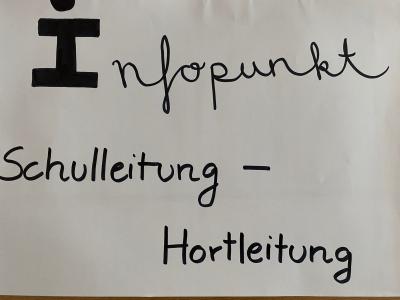 Infopunkt
Schulleitung -
Hortleitung